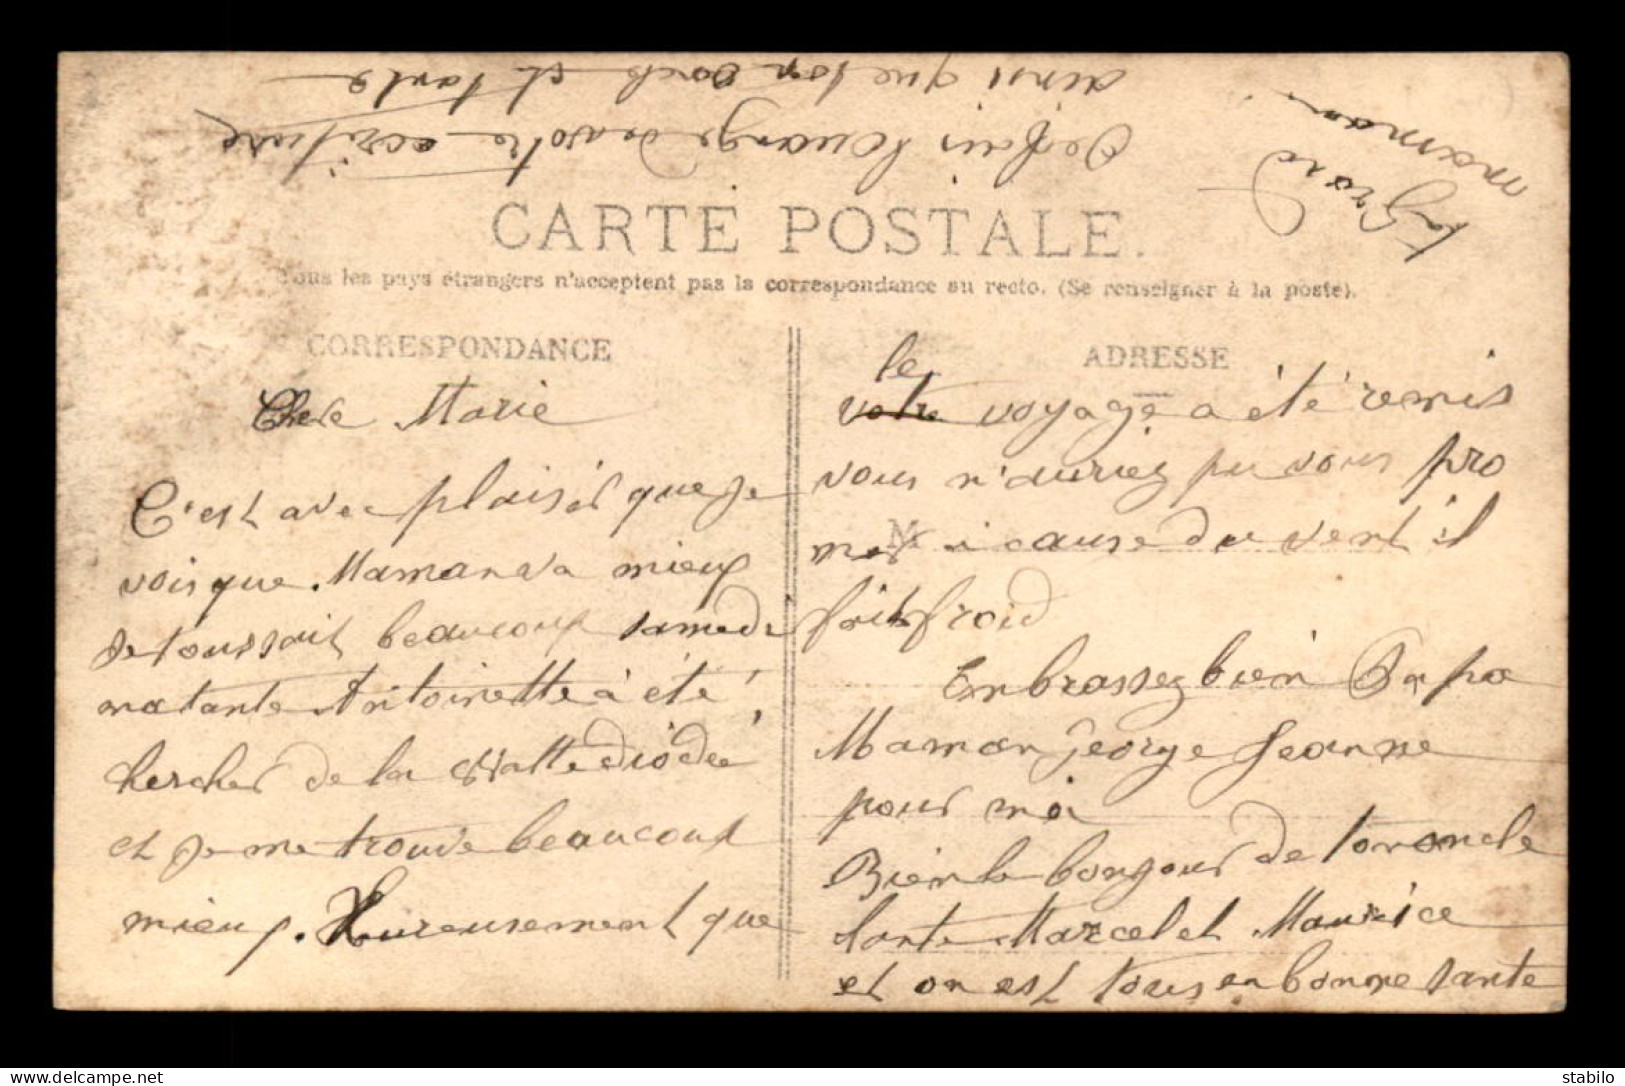 CARTE POSTALE.
Tous les pays étrangers n'acceptent pas la correspondance au recto. (Se renseigner à la poste).
CORRESPONDANCE
Chere Marie
C'est avec plaisir que je
vois que Maman va mieux
je toussait beaucoup samedi
ma tante Antoinette à été
chercher de la
et je me trouve beaucoup
mieux. Hureusement que
ADRESSE
le
votre voyage a été remis
vous n'auriez pu vous pro
mener à cause du vent il
M
fait froid
Enbrassez bien Papa
Maman George Jeanne
pour moi
Bien le bonjour de ton oncle
tante Marcel et Maurice
et on est tous en bonne sante
ta Grand
maman
de votre ecriture
ainsi que ton oncle et tante
stabilo